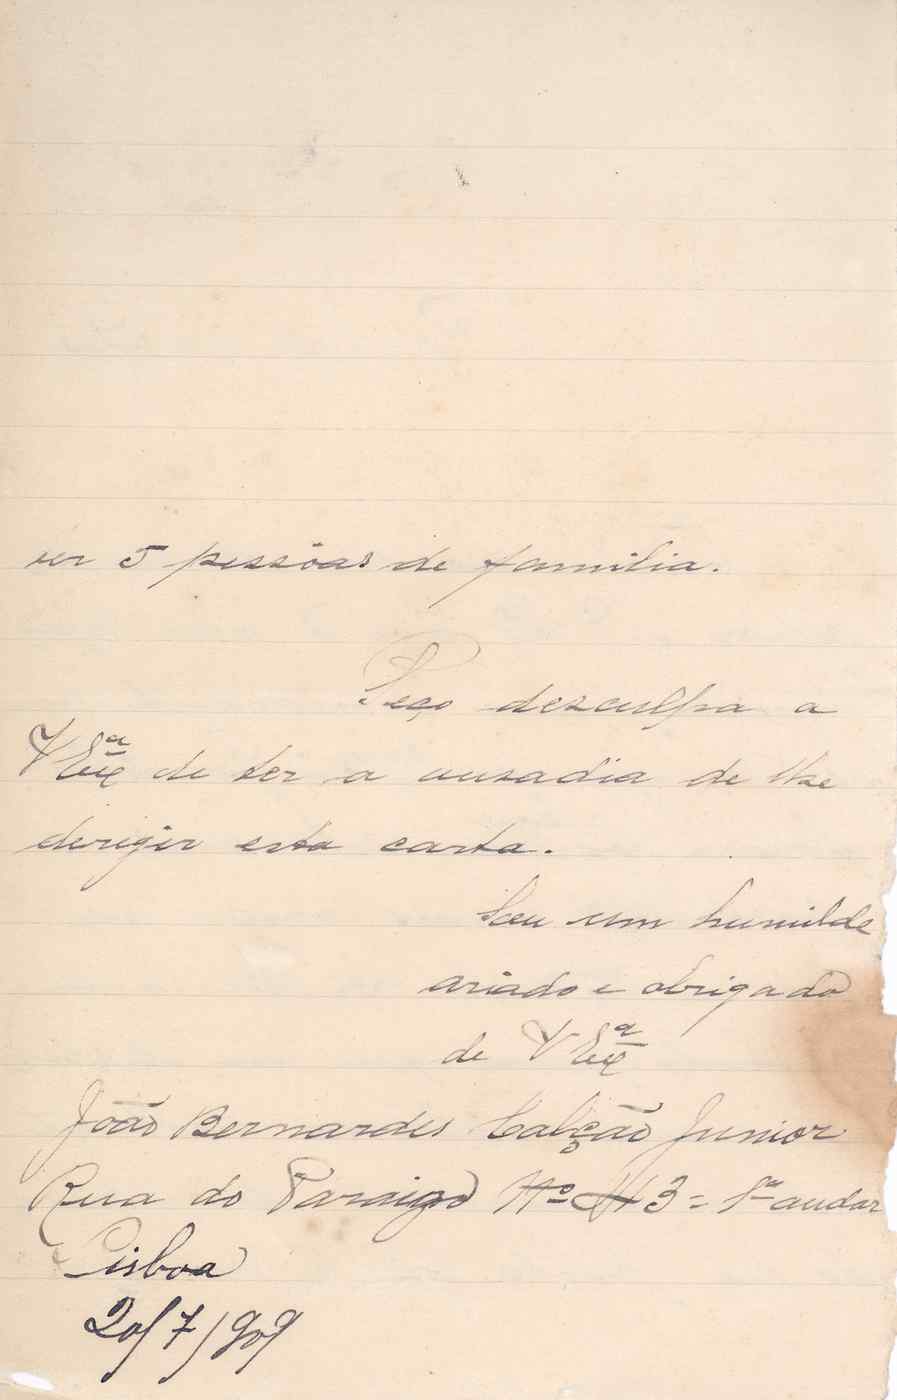 ser 5 pessôas de familia.
Peço desculpa a
V Exª de ter a ousadia de lhe
derigir esta carta.
Sou um humilde
criado e obrigado
de V Exª
João Bernardes Calção Junior
Rua do Paraizo Nº 3 = 1º andar
Lisboa
20/7/909